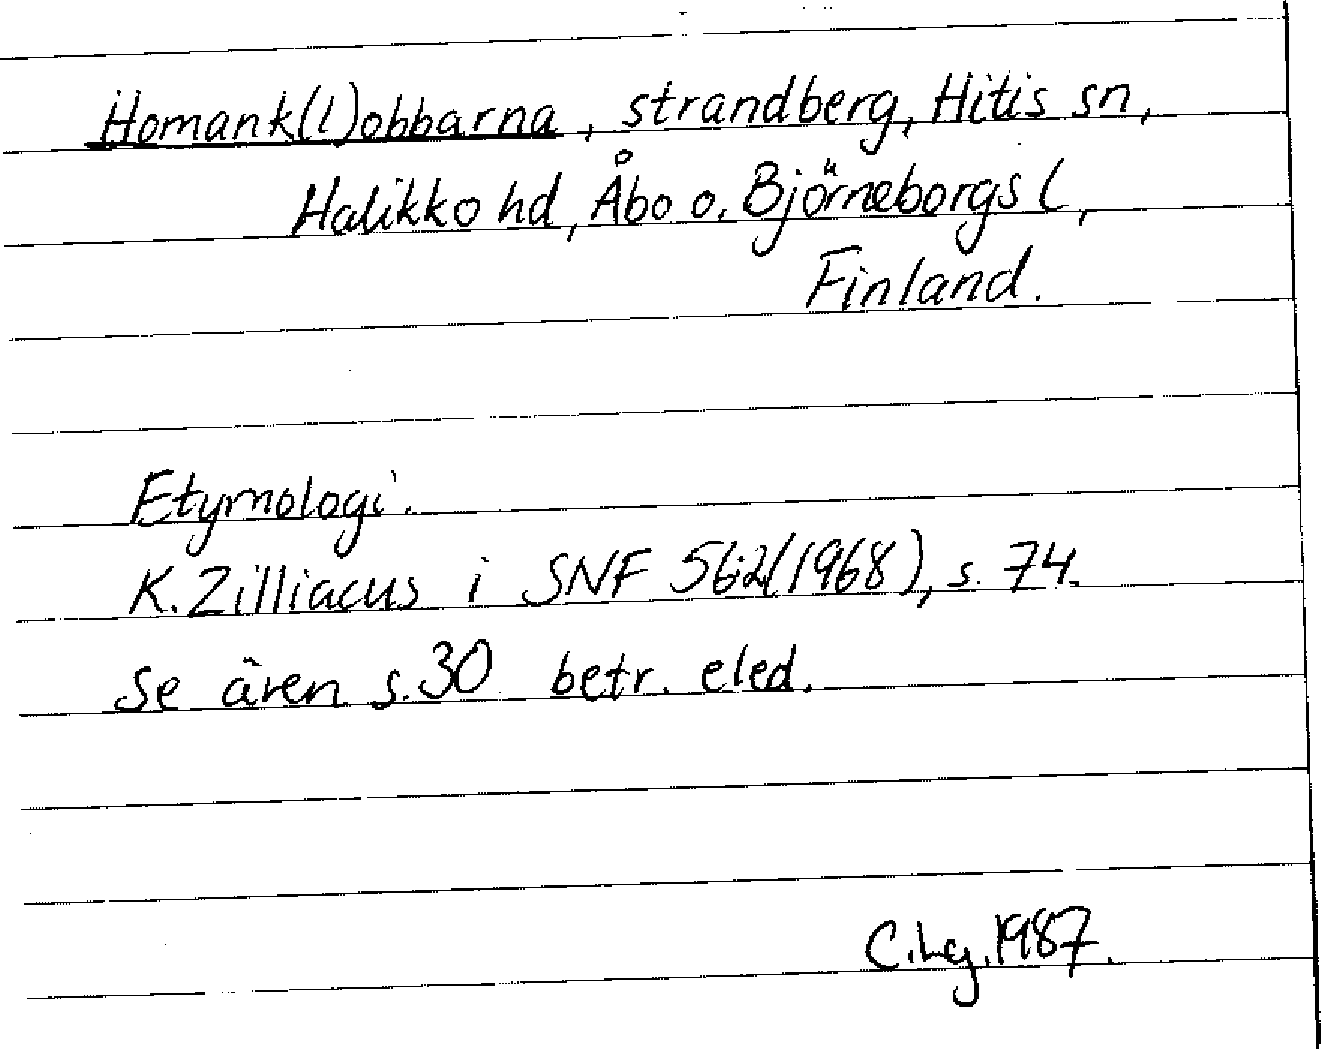 Homank(l)obbarna, strandberg, Hitis sn,
Halikko hd, Åbo o. Björneborgs l,
Finland.
Etymologi.
K. Zilliacus i SNF 56:2(1968), s. 74.
Se även s. 30 betr. eled.
C.Lg. 1987.